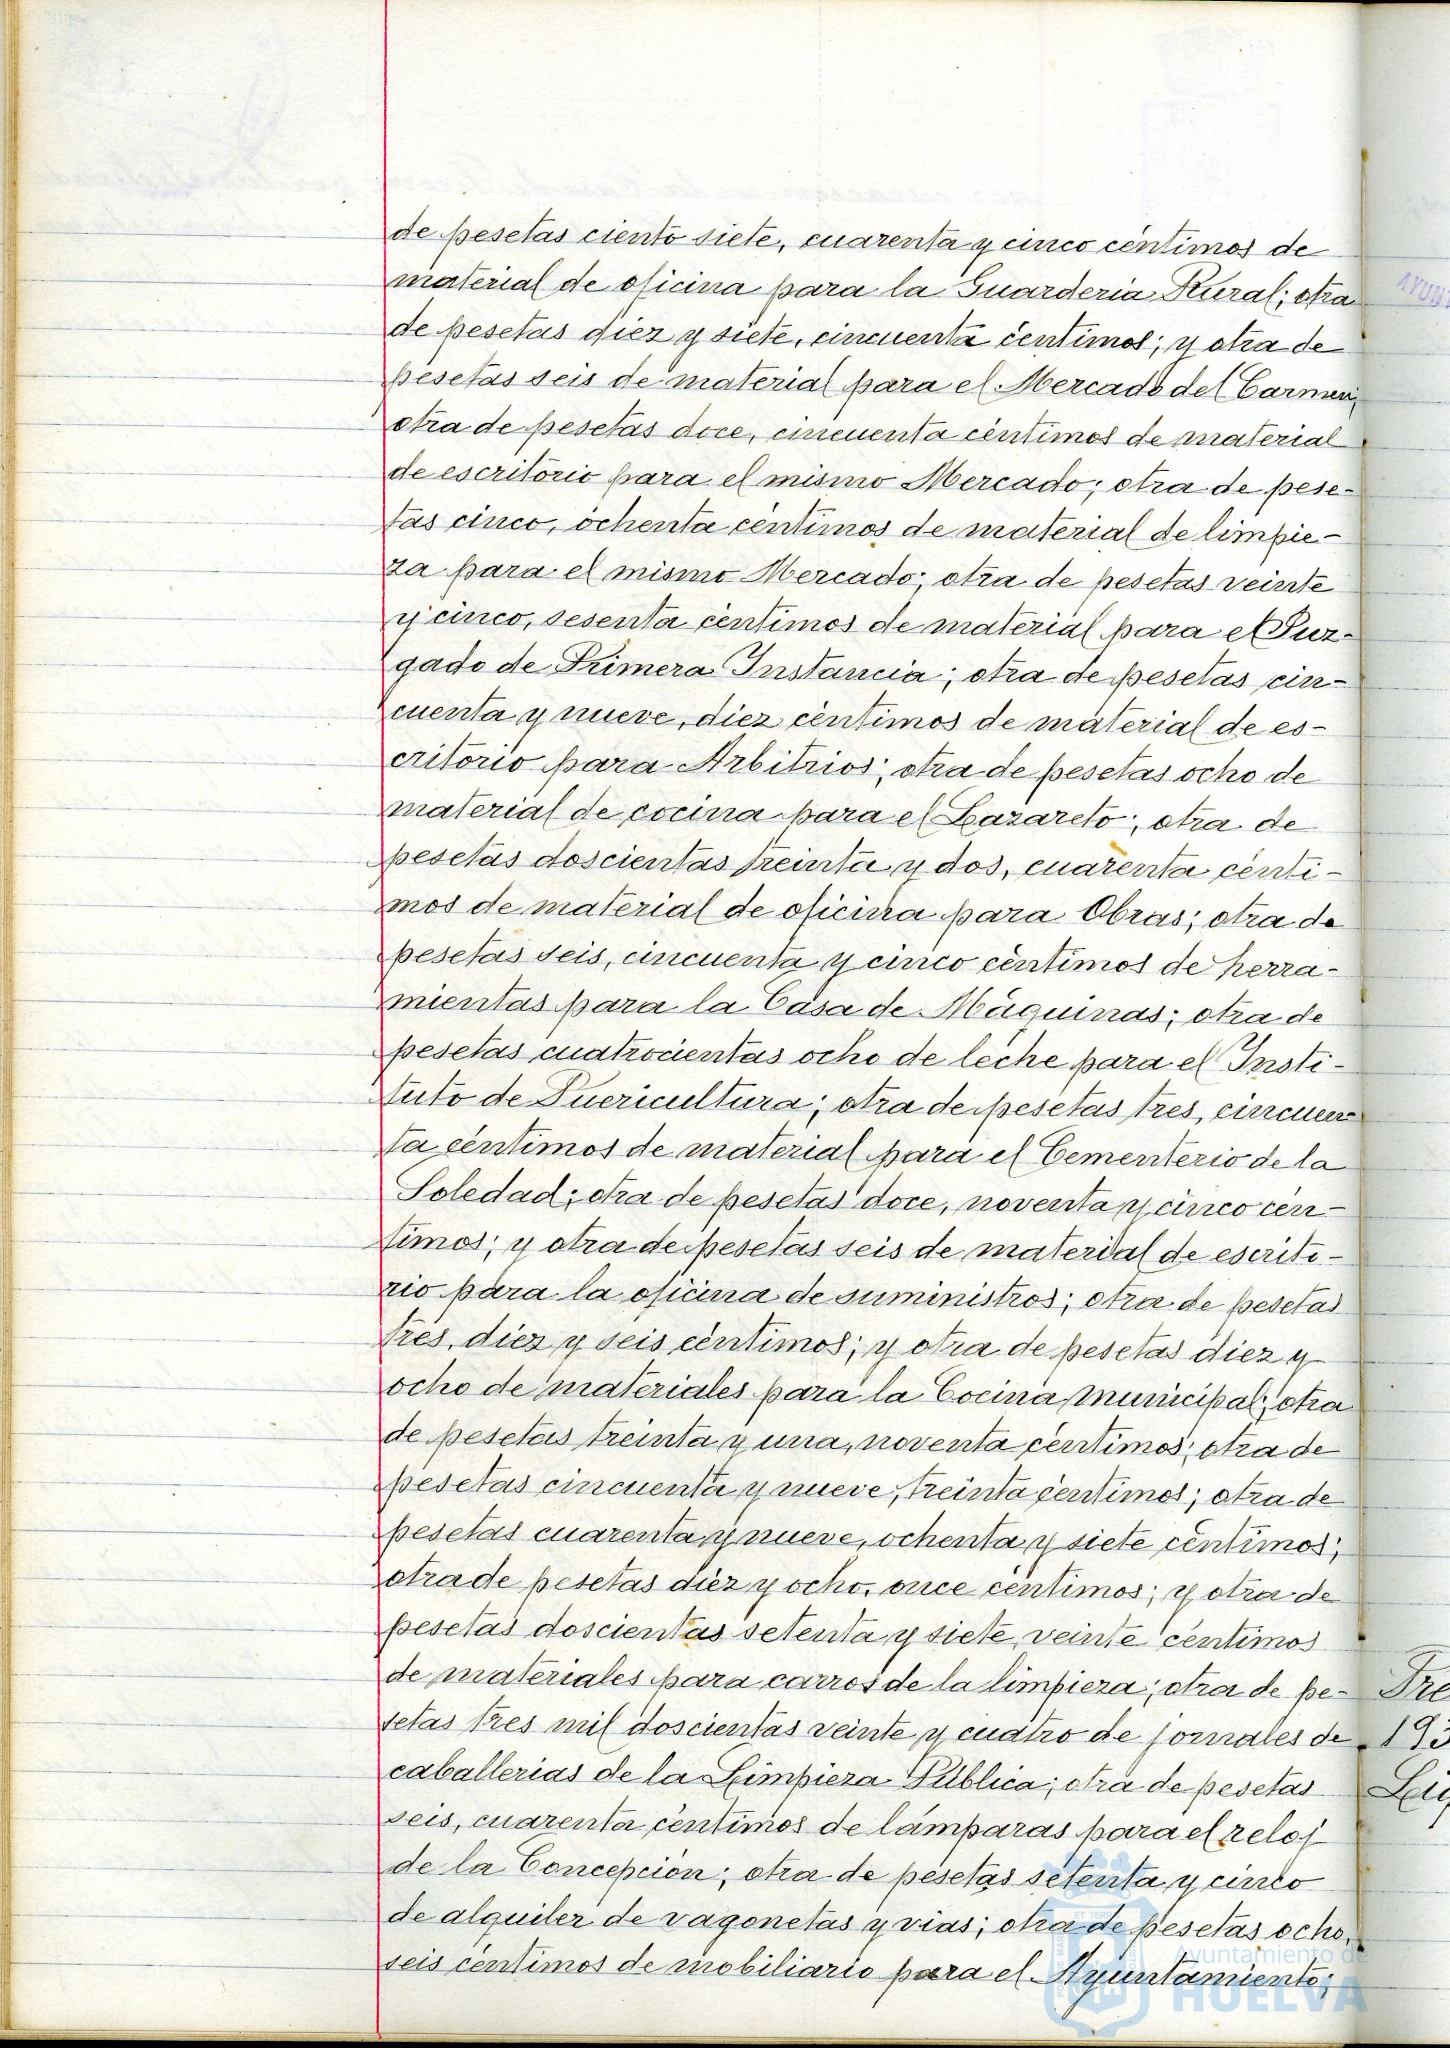 de pesetas ciento siete, cuarenta y cinco céntimos de
material de oficina para la Guarderia Rural; otra
de pesetas diez y siete, cincuenta centimos; y otra de
pesetas seis de material para el Mercado del Carmen;
otra de pesetas doce, cincuenta céntimos de material
de escritorio para el mismo Mercado; otra de pese-
tas cinco, ochenta céntimos de material de limpie-
za para el mismo Mercado; otra de pesetas veinte
y cinco, sesenta céntimos de material para el Juz-
gado de Primera Instancia; otra de pesetas cin-
cuenta y nueve, diez céntimos de material de es-
critorio para Arbitrios; otra de pesetas ocho de
material de cocina para el Lazareto; otra de
pesetas doscientas treinta y dos, cuarenta cénti-
mos de material de oficina para Obras; otra de
pesetas seis, cincuenta y cinco céntimos de herra-
mientas para la Casa de Máquinas; otra de
pesetas cuatrocientas ocho de leche para el Insti-
tuto de Puericultura; otra de pesetas tres, cincuen-
ta céntimos de material para el Cementerio de la
Soledad; otra de pesetas doce, noventa y cinco cén-
timos; y otra de pesetas seis de material de escrito-
rio para la oficina de suministros; otra de pesetas
tres, diez y seis céntimos; y otra de pesetas diez y
ocho de materiales para la Cocina Municipal; otra
de pesetas treinta y una, noventa céntimos; otra de
pesetas cincuenta y nueve, treinta céntimos; otra de
pesetas cuarenta y nueve, ochenta y siete céntimos;
otra de pesetas diez y ocho, once céntimos; y otra de
pesetas doscientas setenta y siete, veinte céntimos
de materiales para carros de la limpieza; otra de pe-
setas tres mil doscientas veinte y cuatro de jornales de
caballerias de la Limpieza Pública; otra de pesetas
seis, cuarenta céntimos de lámparas para el reloj
de la Concepción; otra de pesetas setenta y cinco
de alquiler de vagonetas y vias; otra de pesetas ocho,
seis céntimos de mobiliario para el Ayuntamiento;
AYUNT
Tre
193
Ayuntamiento de
HUELVA